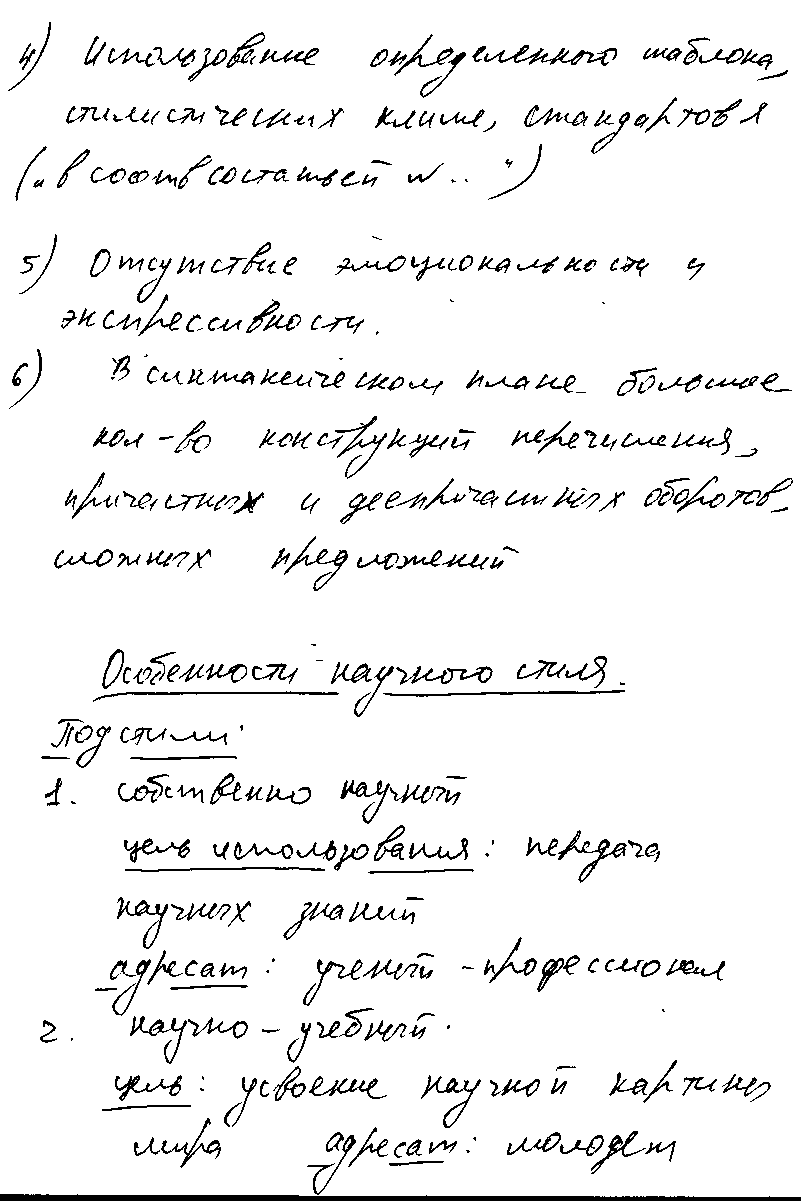 4) Использование определенного шаблона,
стилистических клише, стандартов
(„в соотв со статьей № .. “)
5) Отсутствие эмоциональности и
экспрессивности.
6) В синтаксическом плане большое
кол-во конструкций перечисления,
причастных и деепричастных оборотов,
сложных предложений
Особенности научного стиля.
Подстили:
1. собственно научный
цель использования: передача
научных знаний
адресат: ученый - профессионал
2. научно - учебный.
цель: усвоение научной картины
мира адресат: молодежь